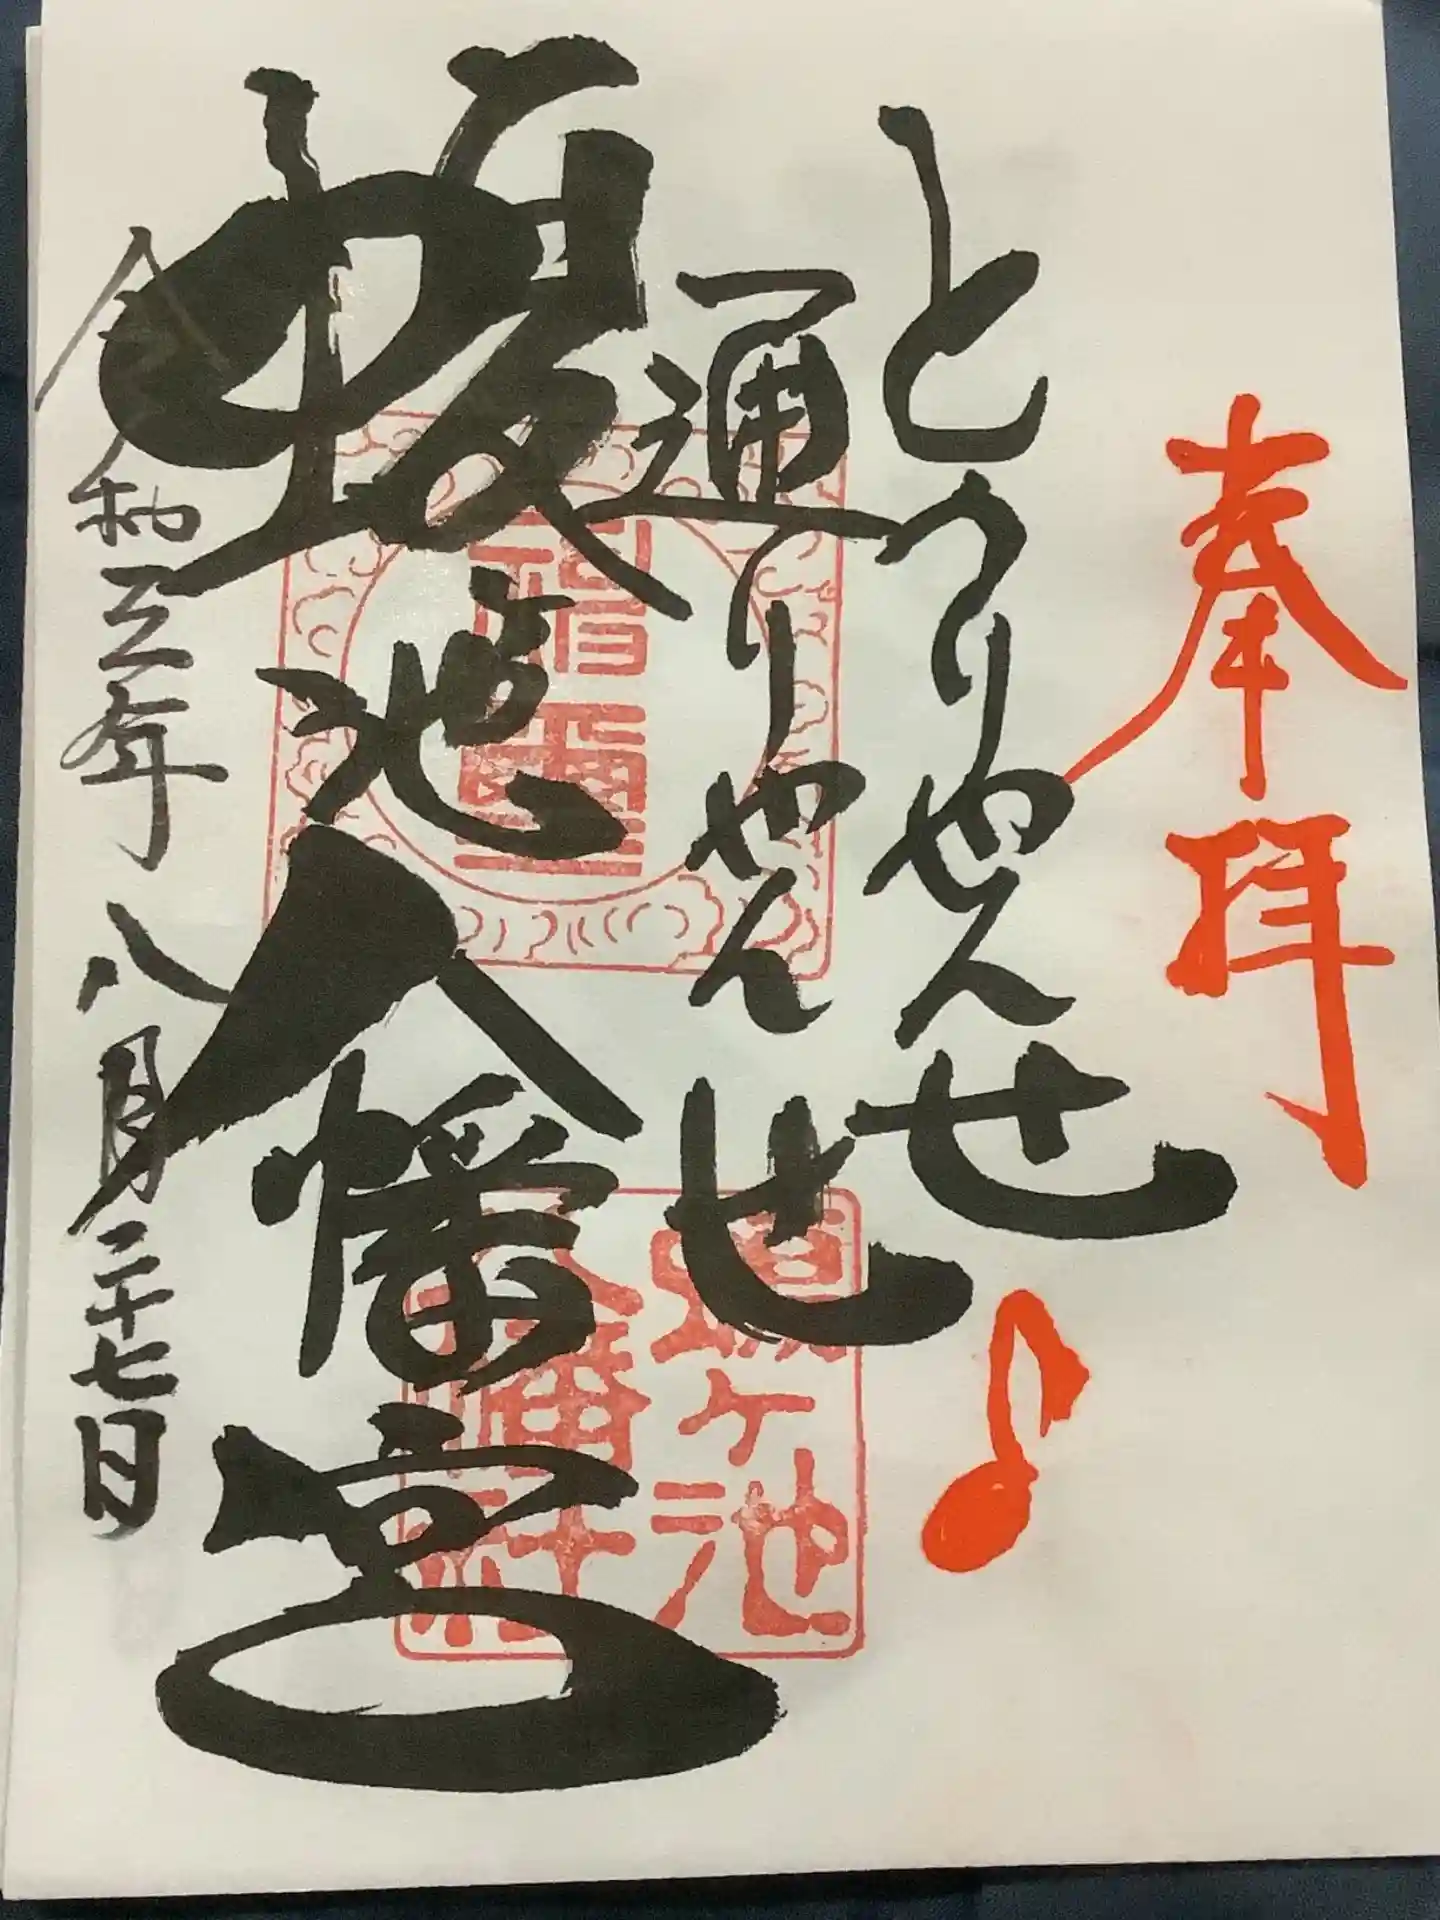 奉拝
とうりやんせ
通りやんせ♪
蝮ヶ池八幡宮
令和三年八月二十七日
蝮ヶ池
八幡社